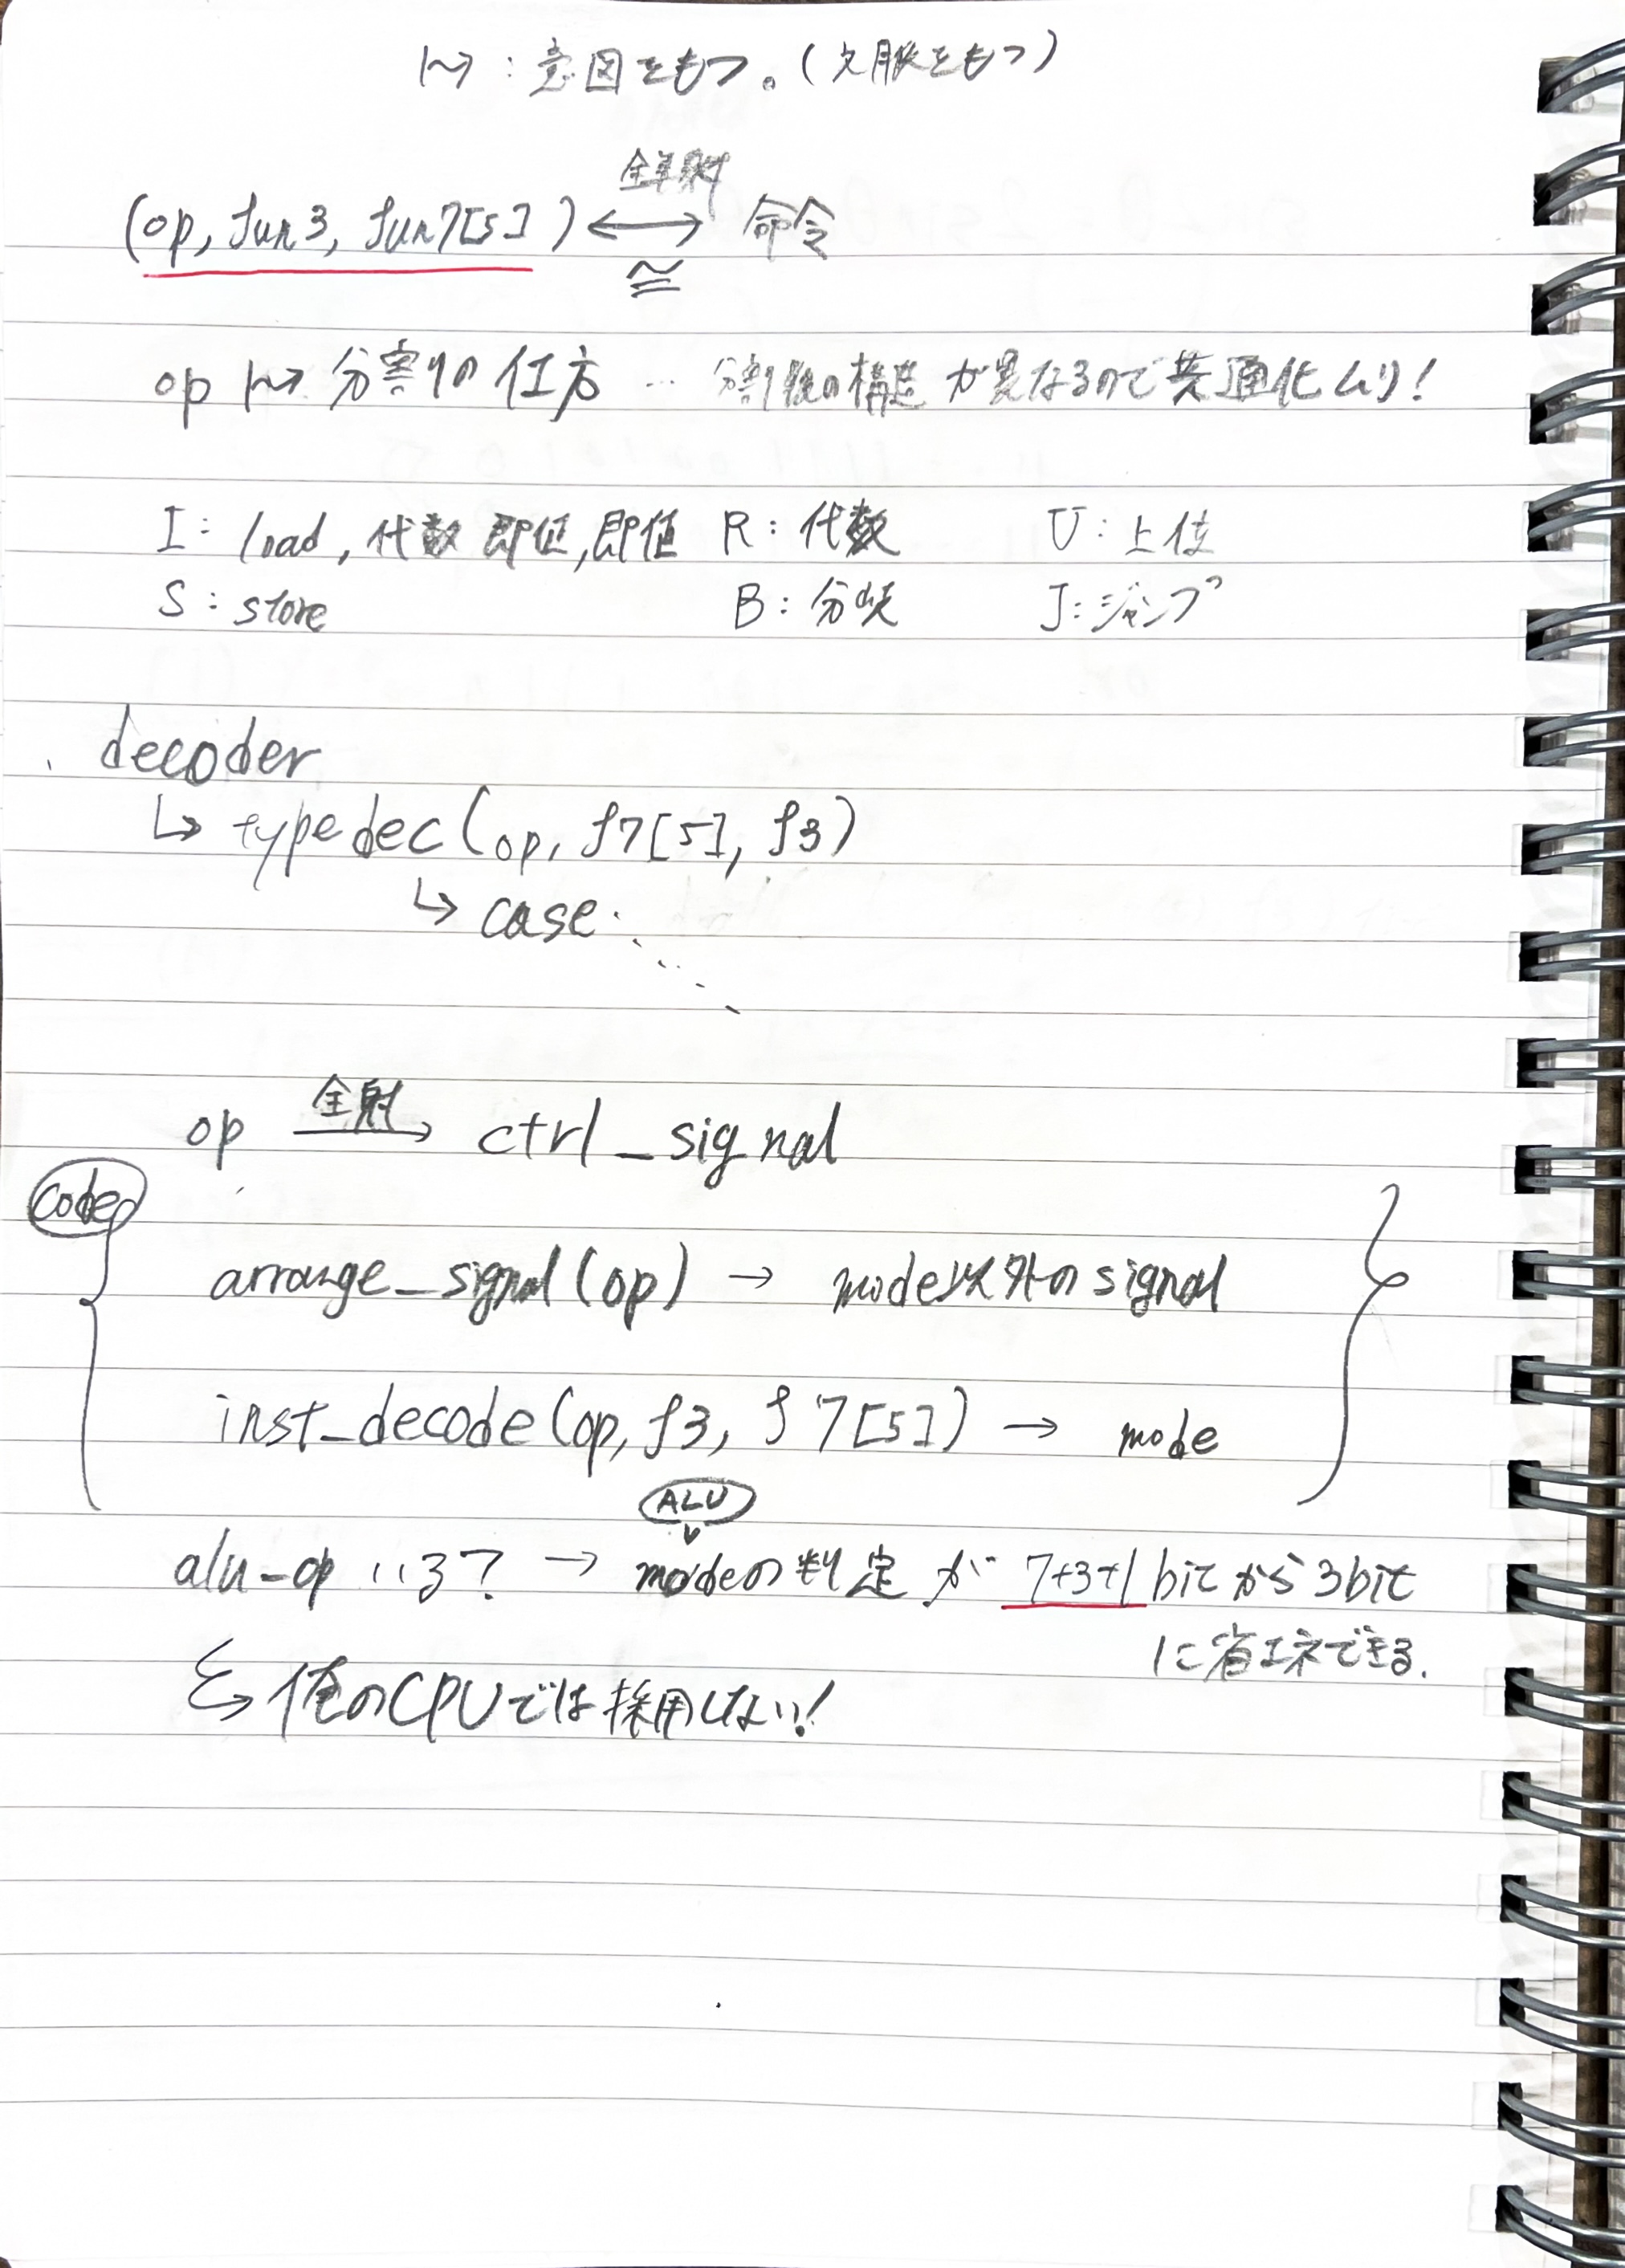 ↝ : 意図をもつ。(文脈をもつ)
全単射
(op, fun3, fun7[5]) ←→ 命令
≅
op ↝ 分割の仕方 … 分割後の構造が異なるので共通化ムリ!
I: load, 代数即値, 即値 R: 代数 U: 上位
S: store B: 分岐 J: ジャンプ
decoder
↳ typedec(op, f7[5], f3)
↳ case:
全射
op → ctrl_signal
code
arrange_signal(op) → mode以外のsignal
inst_decode(op, f3, f7[5]) → mode
ALU
alu-op いる? → modeの判定が 7+3+1bitから3bit
に省エネできる.
↳ 俺のCPUでは採用しない!